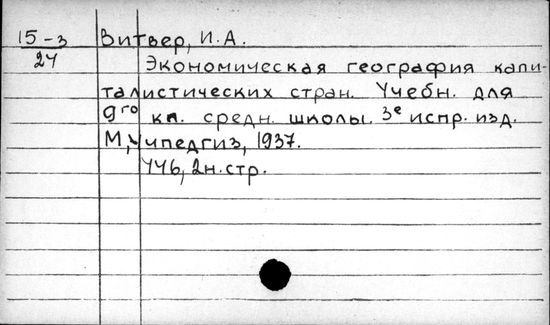 15-3 Витвер, И.А.
24
Экономическая география капи-
талистических стран. Учебн. для
9го кл. средн. школы. 3е испр. изд.
М, Учпедгиз, 1937.
446, 2н.стр.